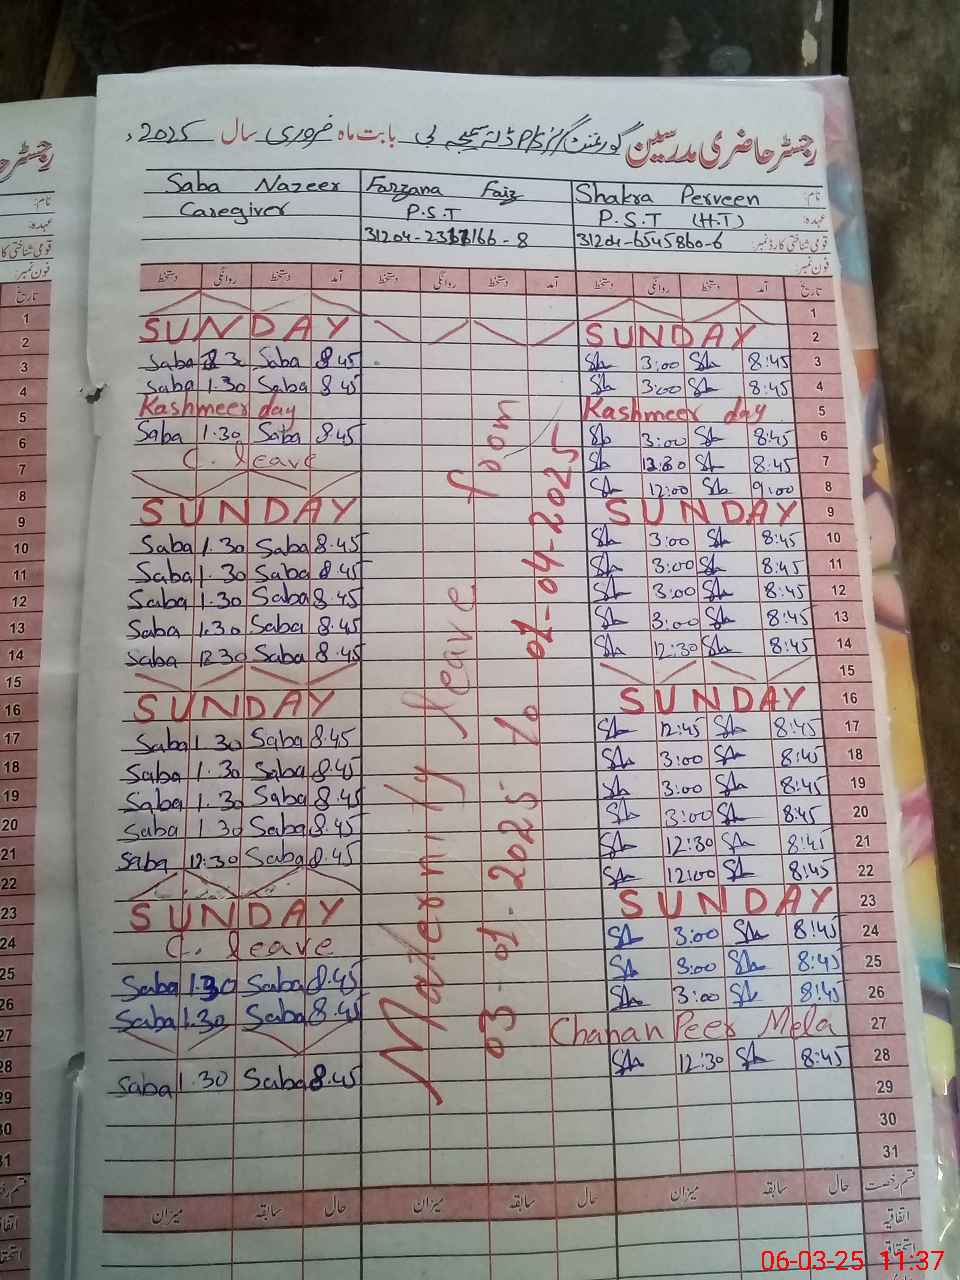 رجسٹر حاضری مدرسین گورنمنٹ گرلز P/S بابت ماہ فروری سال 2025ء
نام: Shakra Perveen Farzana Faiz Saba Nazeer
عہدہ: P.S.T (H.T) P.S.T Caregiver
قومی شناختی کارڈ نمبر: 31204-6545860-6
فون نمبر:
تاریخ آمد دستخط روانگی دستخط آمد دستخط روانگی دستخط آمد دستخط روانگی دستخط
1
SUNDAY SUNDAY 2
Saba Saba 8.45 3:00 8:45 3
Saba 1.30 Saba 8.45 3:00 8:45 4
Kashmeer day Kashmeer day 5
Saba 1.30 Saba 8.45 3:00 8:45 6
C. leave 8:45 7
12:00 9:00 8
SUNDAY SUNDAY 9
Saba 1.30 Saba 8.45 3:00 8:45 10
Saba 1.30 Saba 8.45 3:00 8:45 11
Saba 1.30 Saba 8.45 3:00 8:45 12
Saba 1.30 Saba 8.45 3:00 8:45 13
Saba 12.30 Saba 8.45 12:30 8:45 14
15
SUNDAY SUNDAY 16
Saba 1.30 Saba 8.45 12:45 8:45 17
Saba 1.30 Saba 8.45 3:00 8:45 18
Saba 1.30 Saba 8.45 3:00 8:45 19
Saba 1.30 Saba 8.45 3:00 8:45 20
Saba 12.30 Saba 8.45 12:30 8:45 21
12:00 8:45 22
SUNDAY SUNDAY 23
C. leave 3:00 8:45 24
Saba 1.30 Saba 8.45 3:00 8:45 25
Saba 1.30 Saba 8.45 3:00 8:45 26
Chanan Peer Mela 27
Saba 1.30 Saba 8.45 12:30 8:45 28
29
30
31
Maternity leave from
03-01-2025 to 01-04-2025
قسم رخصت حال سابقہ میزان حال سابقہ میزان حال سابقہ میزان
اتفاقیہ
استحقاقیہ
06-03-25 11:37